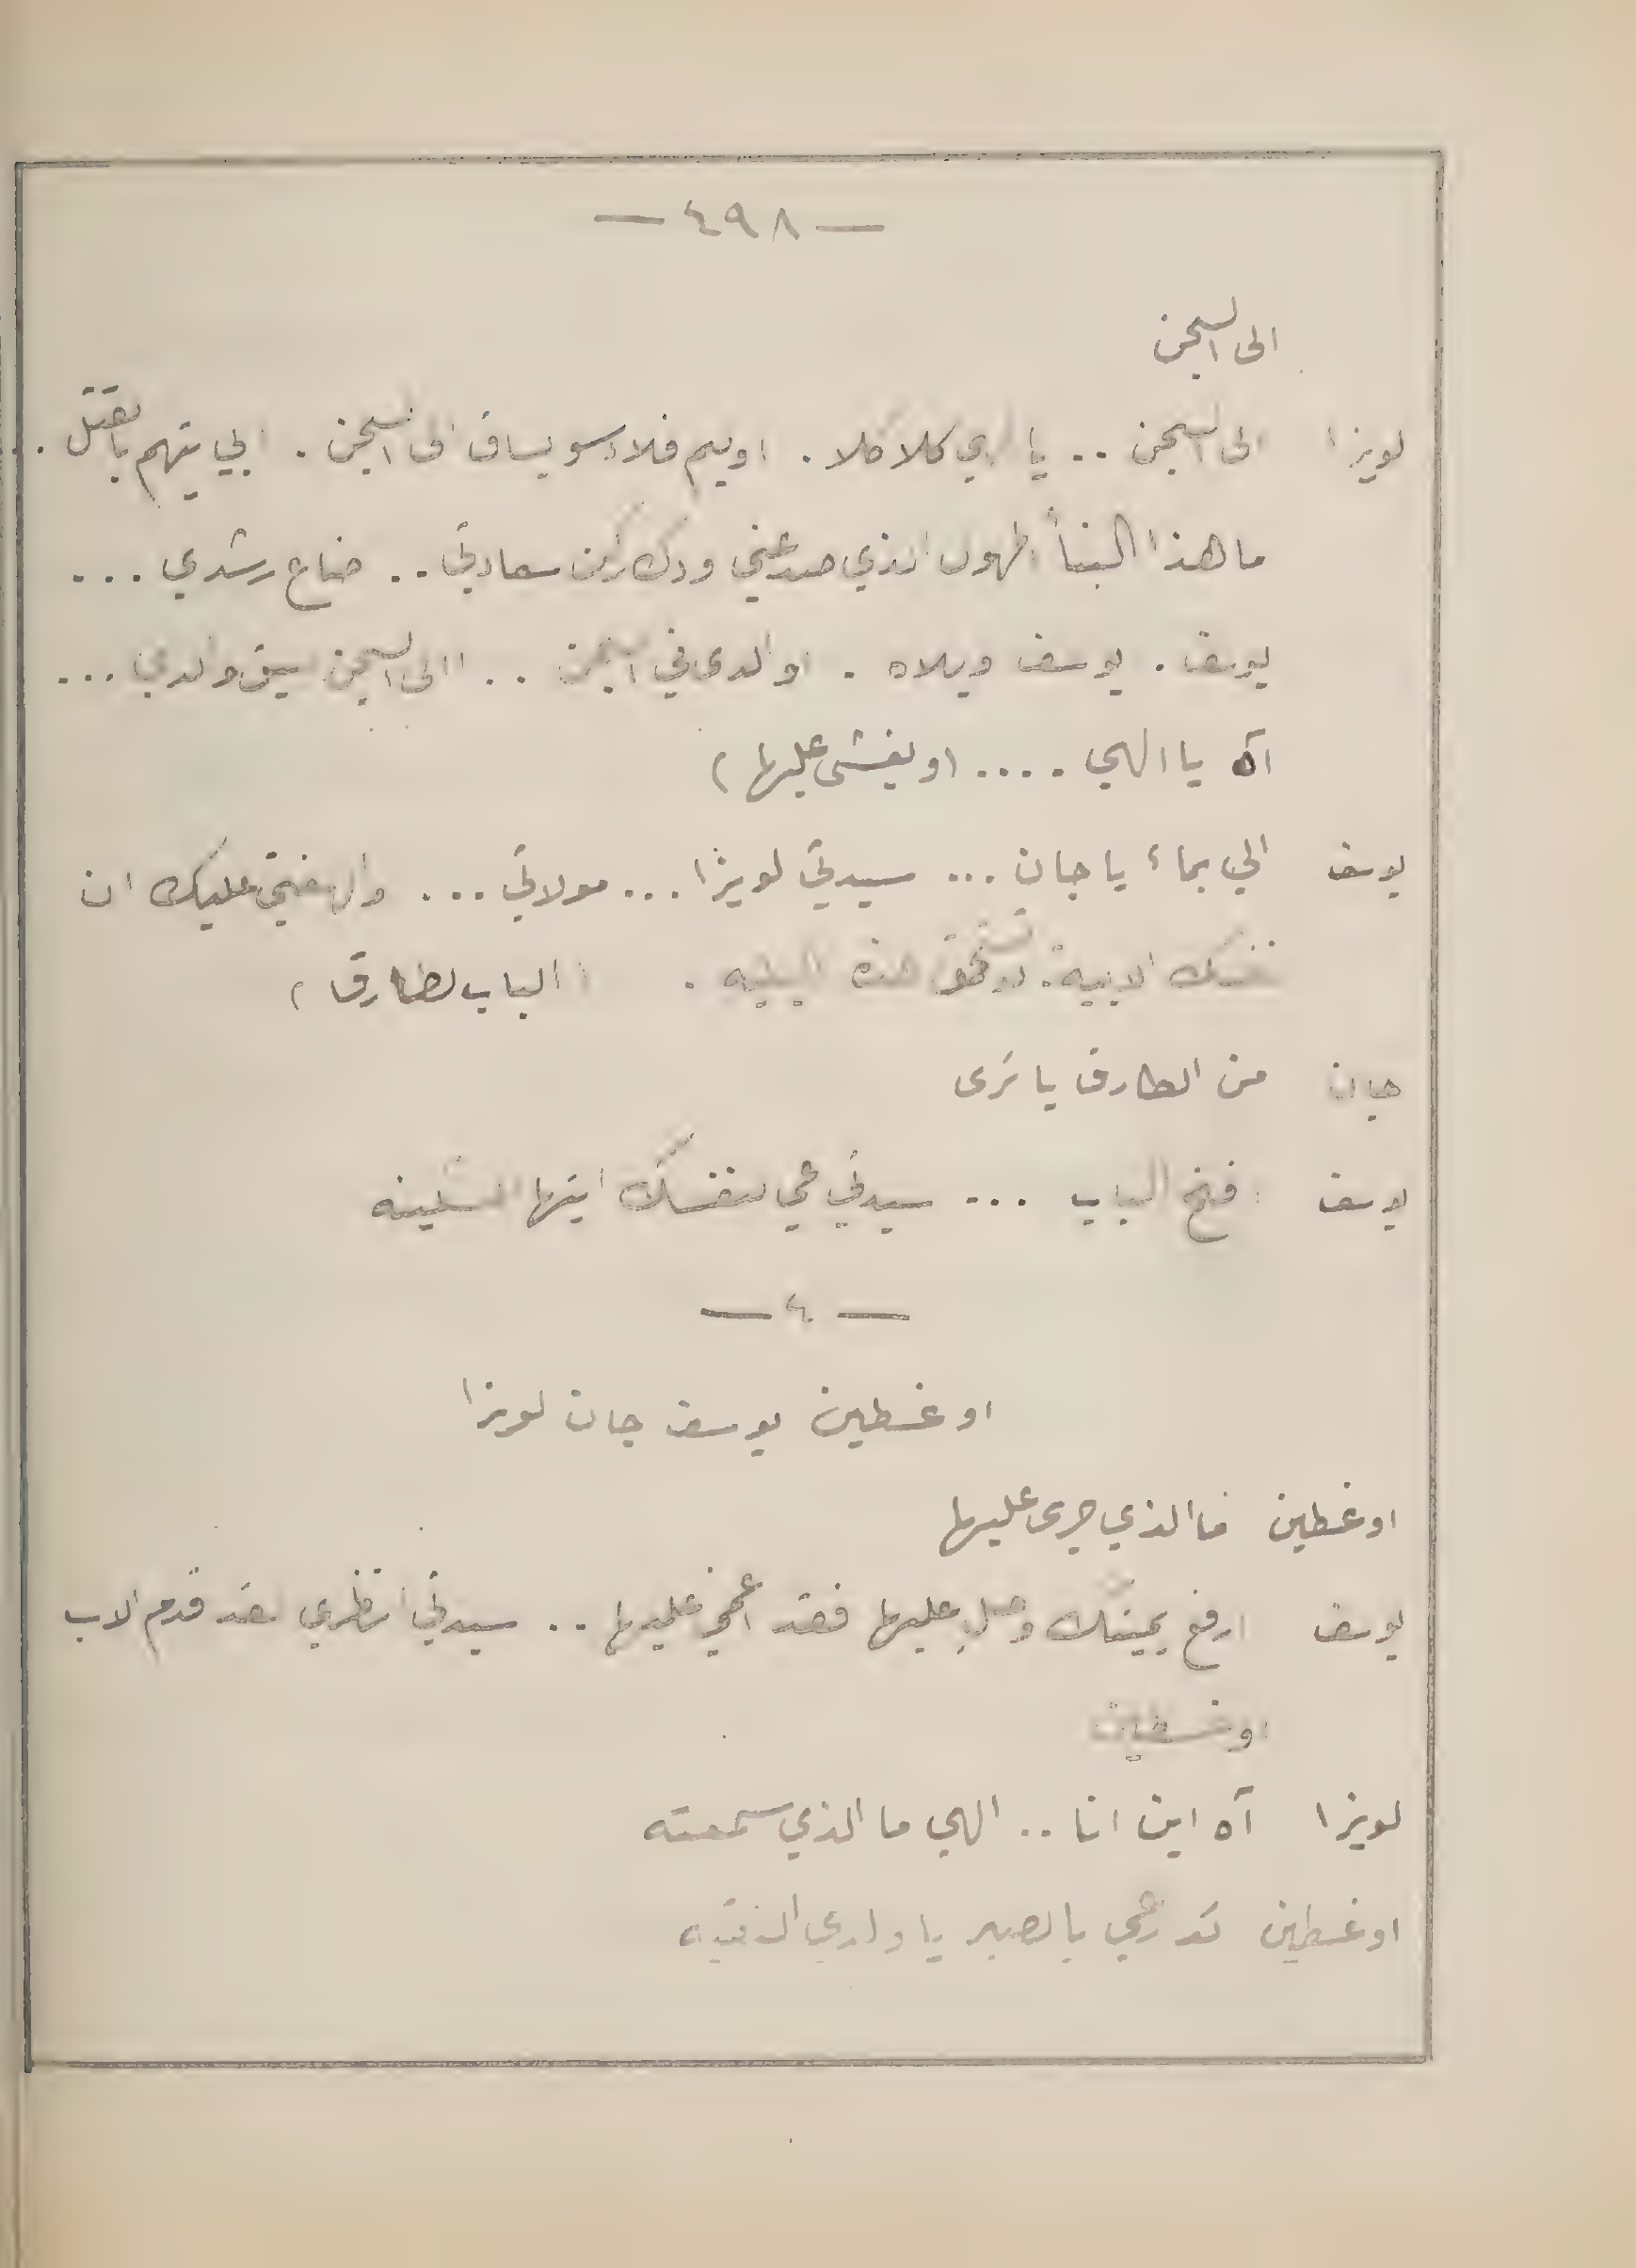 — ٤٩٨ —
الى السجن
لويزا الى السجن .. يا ابي كلا كلا . اوليم فلاد سو يساق الى السجن . ابي يتهم بالقتل .
ما هذا النبأ المهول الذي صدعني ودك ركن سعادتي .. ضاع رشدي ...
يوسف . يوسف ويلاه . او والدي في السجن .. االى السجن سيق والدي ...
آه يا الهي .... ( ويغشى عليها )
يوسف الي بماء يا جان ... سيدتي لويزا ... مولاتي ... والهفتي عليك ان
نفسك الابية لا تستحق هذه البلية . ( الباب يطرق )
جان من الطارق يا ترى
يوسف افتح الباب ... سيدتي عي لنفسك ايتها المسكينه
— ٤ —
اوغسطين يوسف جان لويزا
اوغسطين ما الذي جرى عليها
يوسف ارفع يمينك وصل عليها فقد اغمي عليها .. سيدتي انظري لقد قدم الاب
اوغسطين
لويزا آه اين انا .. الهي ما الذي سمعته
اوغسطين تدرعي بالصبر يا ولدي